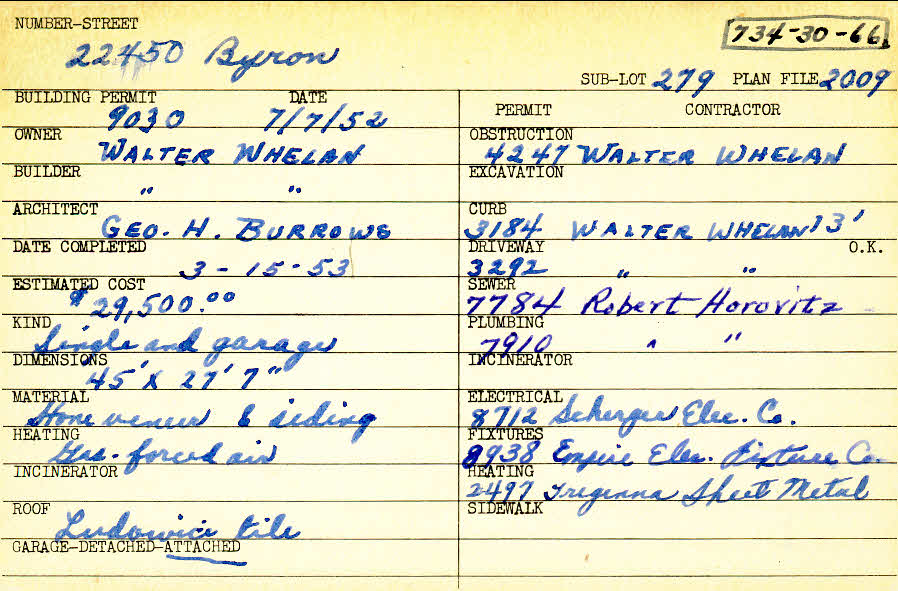 NUMBER-STREET
22450 Byron
734-30-66
SUB-LOT 279 PLAN FILE 2009
BUILDING PERMIT DATE
9030 7/7/52
OWNER
WALTER WHELAN
BUILDER
" "
ARCHITECT
GEO. H. BURROWS
DATE COMPLETED
3-15-53
ESTIMATED COST
$29,500.00
KIND
Single and garage
DIMENSIONS
45' X 27' 7"
MATERIAL
Stone veneer & siding
HEATING
Gas-forced air
INCINERATOR
ROOF
Ludowici tile
GARAGE-DETACHED-ATTACHED
PERMIT CONTRACTOR
OBSTRUCTION
4247 WALTER WHELAN
EXCAVATION
CURB
3184 WALTER WHELAN 13'
DRIVEWAY O.K.
3292 " "
SEWER
7784 Robert Horovitz
PLUMBING
7910 " "
INCINERATOR
ELECTRICAL
8712 Scherger Elec. Co.
FIXTURES
8938 Empire Elec. Fixture Co.
HEATING
2497 Tregenna Sheet Metal
SIDEWALK